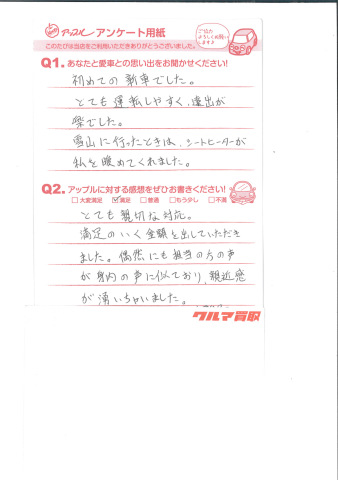 アップル アンケート用紙
ご協力
よろしくお願い
します♪
このたびは当店をご利用いただきありがとうございました。
Q1. あなたと愛車との思い出をお聞かせください!
初めての新車でした。
とても運転しやすく、遠出が
楽でした。
雪山に行ったときは、シートヒーターが
私を暖めてくれました。
Q2. アップルに対する感想をぜひお書きください!
□大変満足 ☑満足 □普通 □もう少し □不満
とても親切な対応。
満足のいく金額を出していただき
ました。偶然にも担当の方の声
が身内の声に似ており、親近感
が湧いちゃいました。
クルマ買取